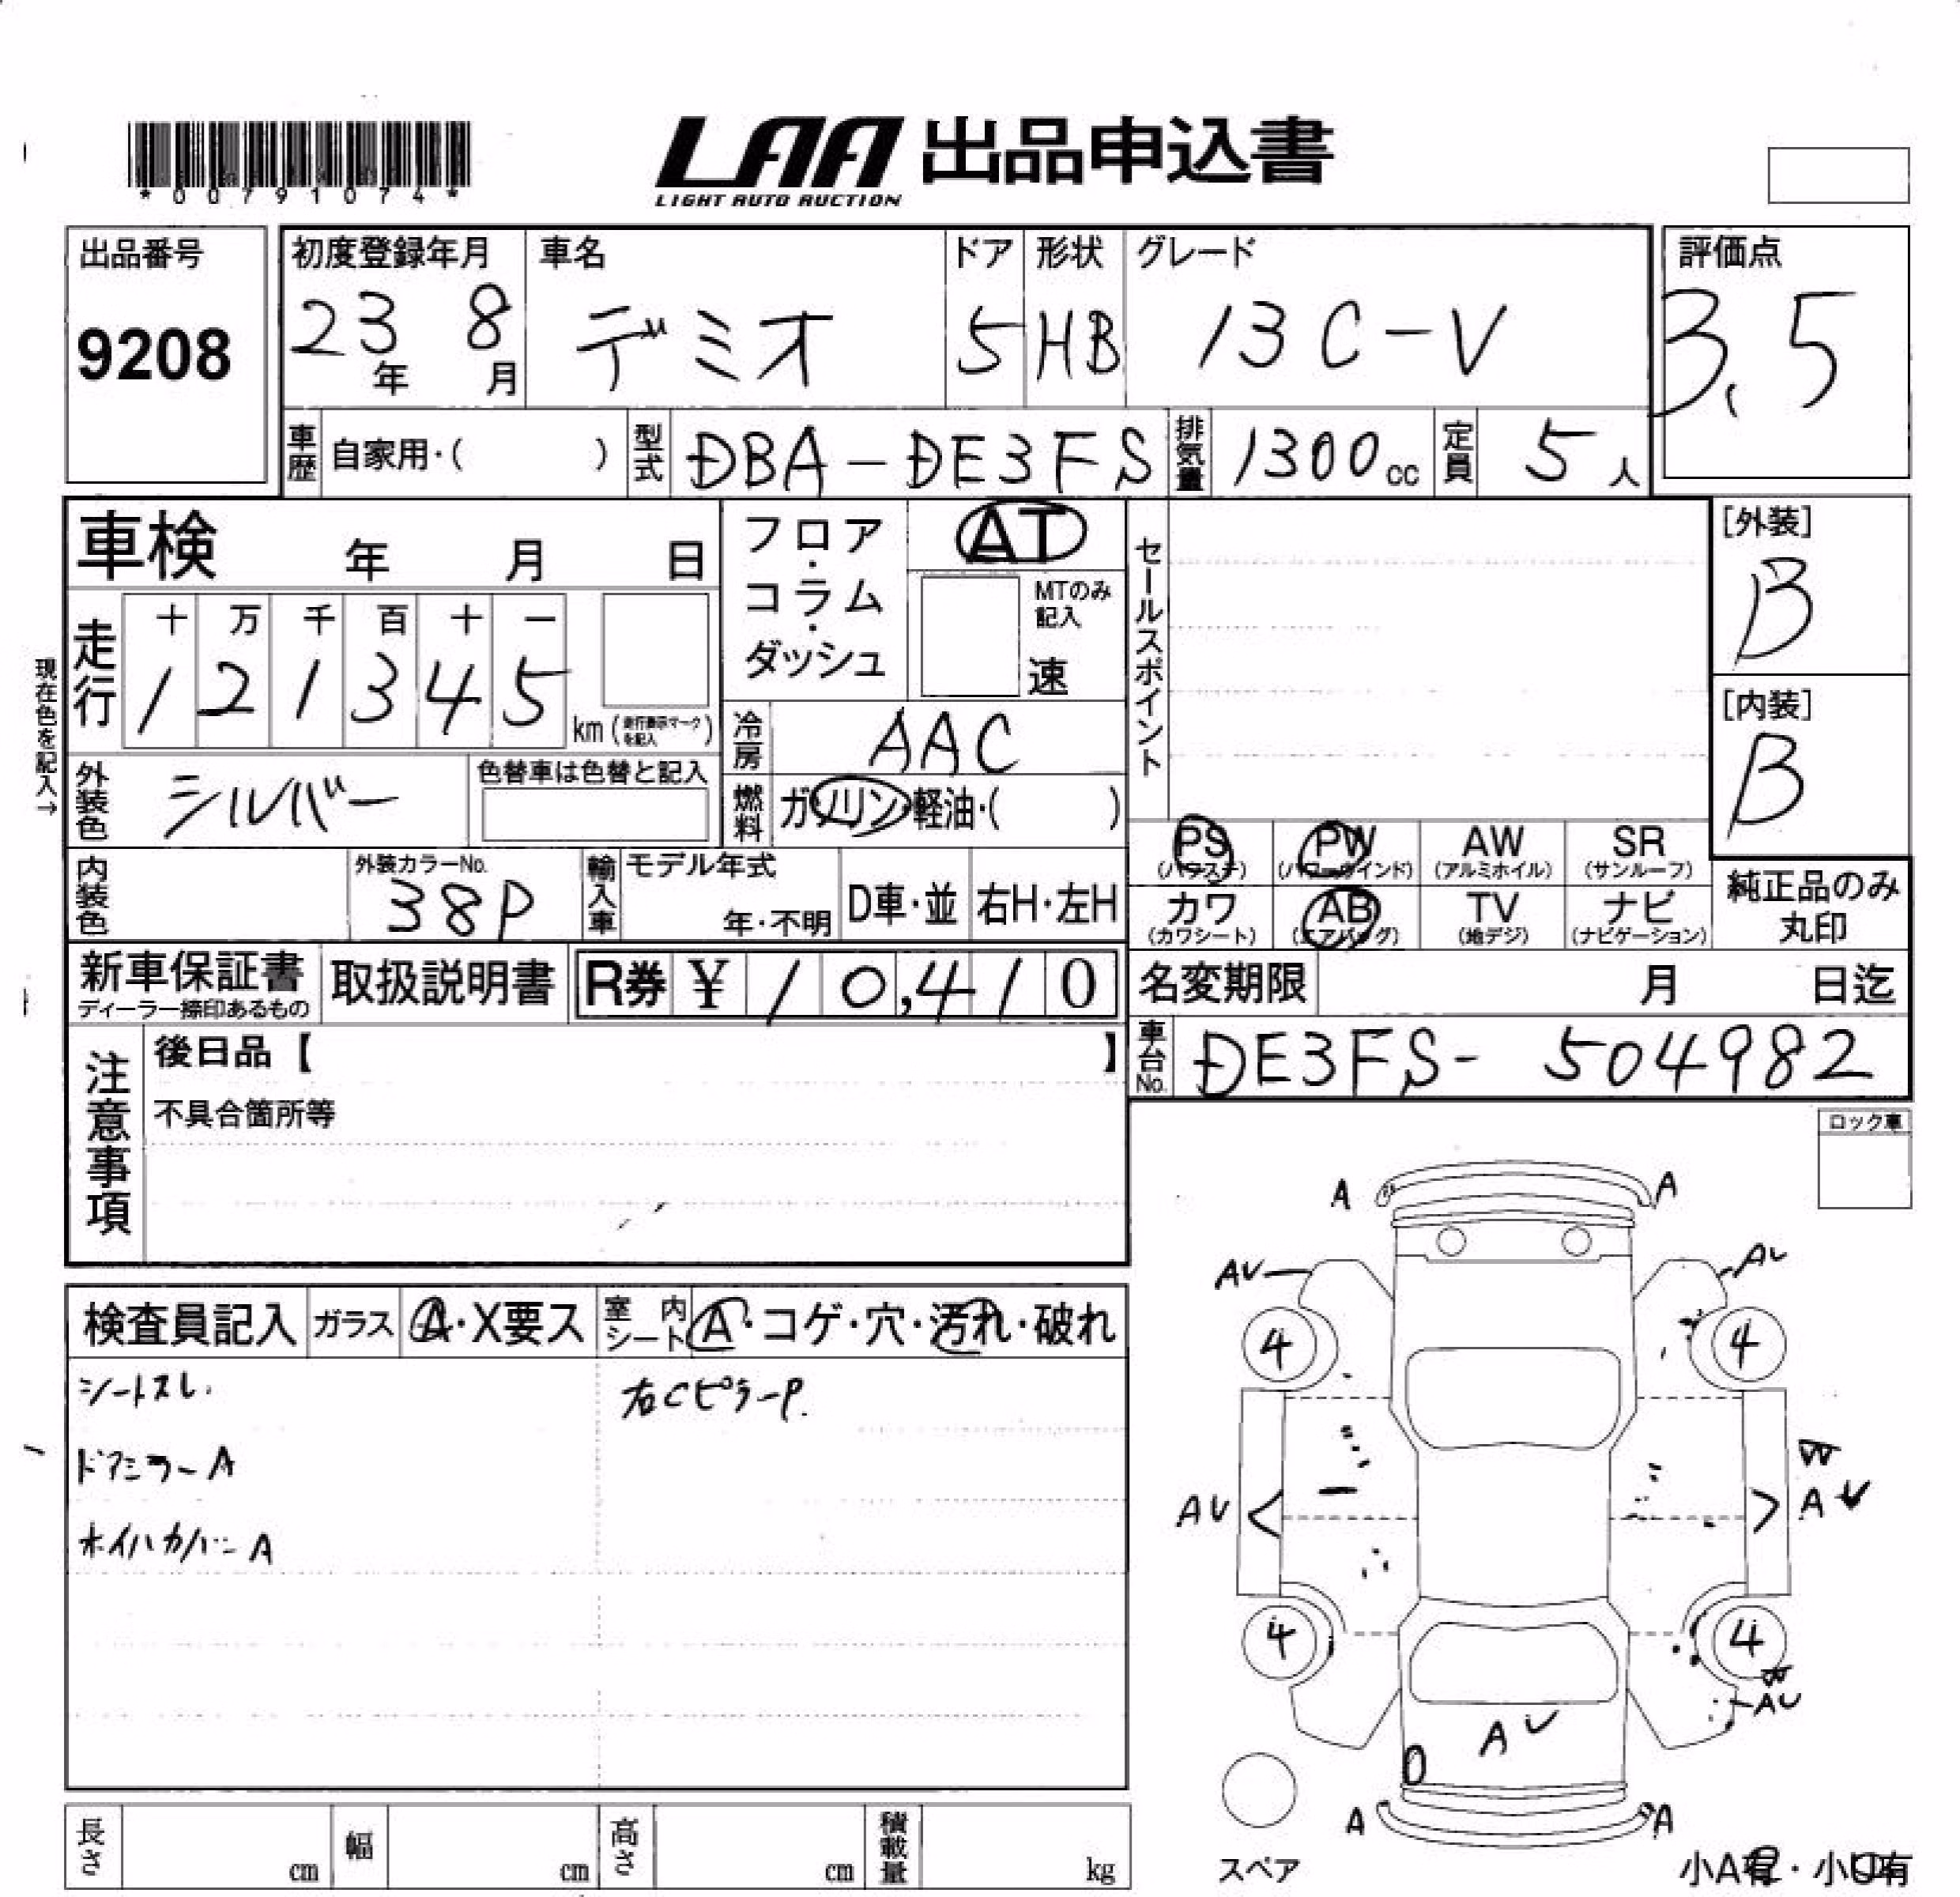 *00791074*
LAA 出品申込書
LIGHT AUTO AUCTION
出品番号
9208
初度登録年月
23年 8月
車名
デミオ
ドア
5
形状
HB
グレード
13C-V
評価点
3.5
車歴 自家用・( )
型式 DBA-DE3FS
排気量 1300cc
定員 5人
車検 年 月 日
現在色を記入→
走行
十 万 千 百 十 一
1 2 1 3 4 5
km (走行表示マークを記入)
フロア・コラム・ダッシュ
AT
MTのみ記入
速
冷房 AAC
燃料 ガソリン・軽油・( )
セールスポイント
[外装]
B
[内装]
B
外装色 シルバー
色替車は色替と記入
内装色
外装カラーNo.
38P
輸入車
モデル年式
年・不明
D車・並
右H・左H
PS (パワステ)
PW (パワーウインド)
AW (アルミホイル)
SR (サンルーフ)
カワ (カワシート)
AB (エアバッグ)
TV (地デジ)
ナビ (ナビゲーション)
純正品のみ
丸印
新車保証書
ディーラー捺印あるもの
取扱説明書
R券 ¥ 10,410
名変期限 月 日迄
車台No. DE3FS-504982
注意事項
後日品【 】
不具合箇所等
ロック車
検査員記入
ガラス A・X要ス
室内シート A・コゲ・穴・汚れ・破れ
シートスレ.
右CピラーP.
ドアミラーA
ホイルカバーA
A A
AU AU
4 4
W
AU AU
4 4
W
AU
AU
A A
スペア
長さ cm
幅 cm
高さ cm
積載量 kg
小A有・小U有